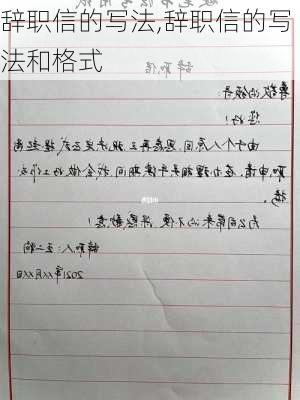 辞职信的写法,辞职信的写
法和格式
辞职信
尊敬的领导:
您好!
由于个人原因,思虑再三,我决定正式提起离
职申请。在办理相关手续期间,我会做好工作交
接。
为公司带来的不便,深感歉意!
辞职人:王二狗
2021年xx月xx日